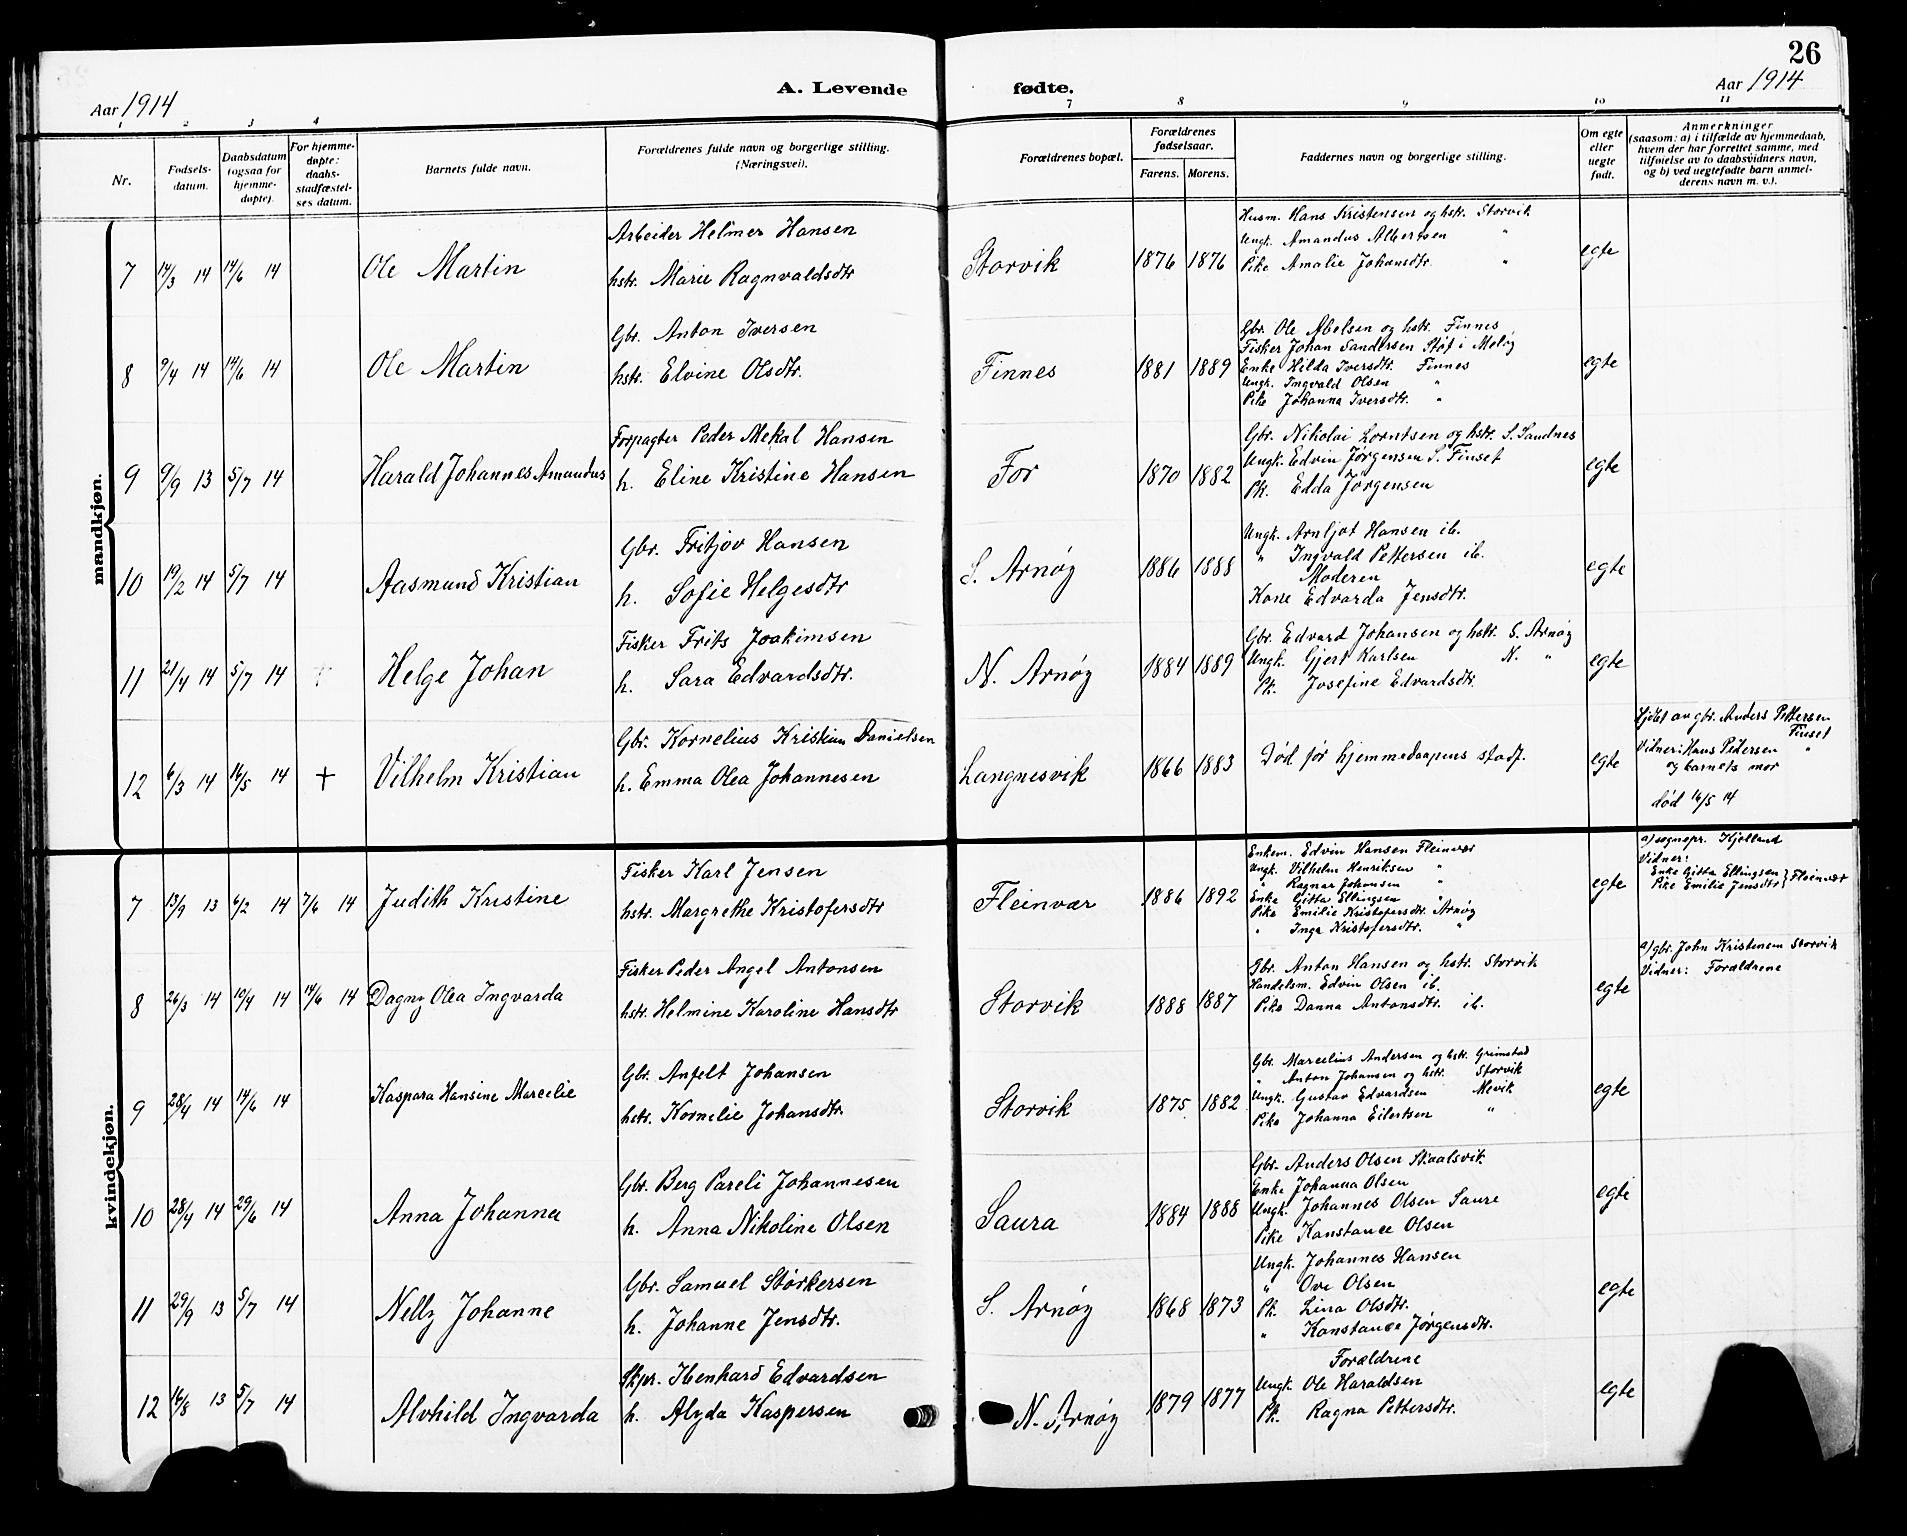 26
Aar 1914
A. Levende fødte.
Aar 1914
1 2 3 4 7 8 9 10 11
Nr.
Fødsels-datum.
Daabsdatum (ogsaa for hjemme-døpte).
For hjemme-døpte: daabs-stadfæstel-ses datum.
Barnets fulde navn.
Forældrenes fulde navn og borgerlige stilling.
(Næringsvei).
Forældrenes bopæl.
Forældrenes fødselsaar.
Farens. Morens.
Faddernes navn og borgerlige stilling.
Om egte eller uegte født.
Anmerkninger
(saasom: a) i tilfælde av hjemmedaab,
hvem der har forrettet samme, med
tilføielse av to daabsvidners navn,
og b) ved uegtefødte barn anmel-
derens navn m. v.).
mandkjøn.
7 14/3 14 14/6 14 Ole Martin
Arbeider Helmer Hansen
hstr. Marie Ragnvaldsdtr
Storvik 1876 1876
Husm. Hans Kristensen og hstr. Storvik
Ungk. Amandus Albertsen "
Pike Amalie Johansdtr. "
egte
8 9/4 14 14/6 14 Ole Martin
Gbr. Anton Iversen
hstr. Elvine Olsdtr.
Finnes 1881 1889
Gbr. Ole Abelsen og hstr. Finnes
Fisker Johan Sandersen Støt i Meløy
Enke Hilda Iversdtr. Finnes
Ungk. Ingvald Olsen "
Pike Johanna Iversdtr. "
egte
9 9/9 13 5/7 14 Harald Johannes Amandus
Forpagter Peder Mekal Hansen
h. Eline Kristine Hansen
For 1870 1882
Gbr. Nikolai Lorntsen og hstr. S. Sandnes
Ungk. Edvin Jørgensen S. Finset
Pk. Edda Jørgensen
egte
10 19/2 14 5/7 14 Aasmund Kristian
Gbr. Fritjov Hansen
h. Sofie Helgesdtr
S. Arnøy 1886 1888
Ungk. Arnljot Hansen ib.
" Ingvald Pettersen ib.
Moderen
Kone Edvarda Jensdtr.
egte
11 21/4 14 5/7 14 Helge Johan
Fisker Frits Joakimsen
h. Sara Edvardsdtr.
N. Arnøy 1884 1889
Gbr. Edvard Johansen og hstr. S. Arnøy
Ungk. Gjert Karlsen N. "
Pk. Josefine Edvardsdtr.
egte
12 6/3 14 16/5 14 + Vilhelm Kristian
Gbr. Kornelius Kristian Danielsen
h. Emma Olea Johannesen
Langnesvik 1866 1883
Død før hjemmedaapens stadf.
egte
Hjdt av gbr. Anders Pettersen
Finset
Vidner: Hans Pedersen "
og barnets mor
død 16/5 14
kvindekjøn.
7 13/9 13 6/2 14 7/6 14 Judith Kristine
Fisker Karl Jensen
hstr. Margrethe Kristofersdtr
Fleinvær 1886 1892
Enkem. Edvin Hansen Fleinvær
Ungk. Vilhelm Henriksen "
" Ragnar Johansen "
Enke Gitta Ellingsen "
Pike Emilie Kristofersdtr. Arnøy
" Inga Kristofersdtr. "
egte
a) sognepr. Kjelland
Vidner:
Enke Gitta Ellingsen } Fleinvær
Pike Emilie Jensdtr
8 26/3 14 19/4 14 14/6 14 Dagny Olea Ingvarda
Fisker Peder Angel Antonsen
hstr. Helmine Karoline Hansdtr
Storvik 1888 1887
Gbr. Anton Hansen og hstr. Storvik
Handelsm. Edvin Olsen ib.
Pike Danna Antonsdtr. ib.
egte
a) gbr. John Kristensen Storvik
Vidner: Forældrene
9 28/4 14 14/6 14 Kaspara Hansine Marcelie
Gbr. Anfelt Johansen
hstr. Kornelie Johansdtr
Storvik 1875 1882
Gbr. Marcelius Andersen og hstr. Grimstad
" Anton Johansen og hstr. Storvik
Ungk. Gustav Edvardsen Mevik
Pike Johanna Eilertsen "
egte
10 28/4 14 29/6 14 Anna Johanna
Gbr. Berg Pareli Johannesen
h. Anna Nikoline Olsen
Saura 1884 1888
Gbr. Anders Olsen Skaalsvik
Enke Johanna Olsen
Ungk. Johannes Olsen Saure
Pike Konstance Olsen
egte
11 29/9 13 5/7 14 Nelly Johanne
Gbr. Samuel Størkersen
h. Johanne Jensdtr.
S. Arnøy 1868 1873
Ungk. Johannes Hansen
" Ove Olsen
Pk. Lina Olsdtr.
" Konstance Jørgensdtr.
egte
12 16/8 13 5/7 14 Alvhild Ingvarda
Skpr. Henhard Edvardsen
h. Alyda Kaspersen
N. Arnøy 1879 1877
Forældrene
Ungk. Ole Haraldsen
Pk. Ragna Pettersdtr.
egte